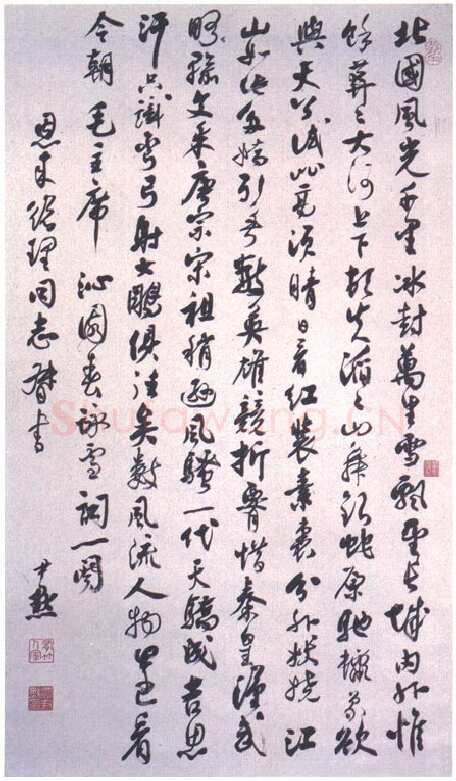 北國風光千里冰封萬里雪飄望長城內外惟
餘莽々大河上下頓失滔々山舞銀蛇原馳蠟象欲
與天公試比高須晴日看紅裝素裹分外妖嬈江
山如此多嬌引無數英雄競折腰惜秦皇漢武
略輸文采唐宗宋祖稍遜風騷一代天驕成吉思
汗只識彎弓射大鵰俱往矣數風流人物還看
今朝 毛主席 沁園春詠雪詞一闋
恩來總理同志督書
尹默
Shufawang.CN